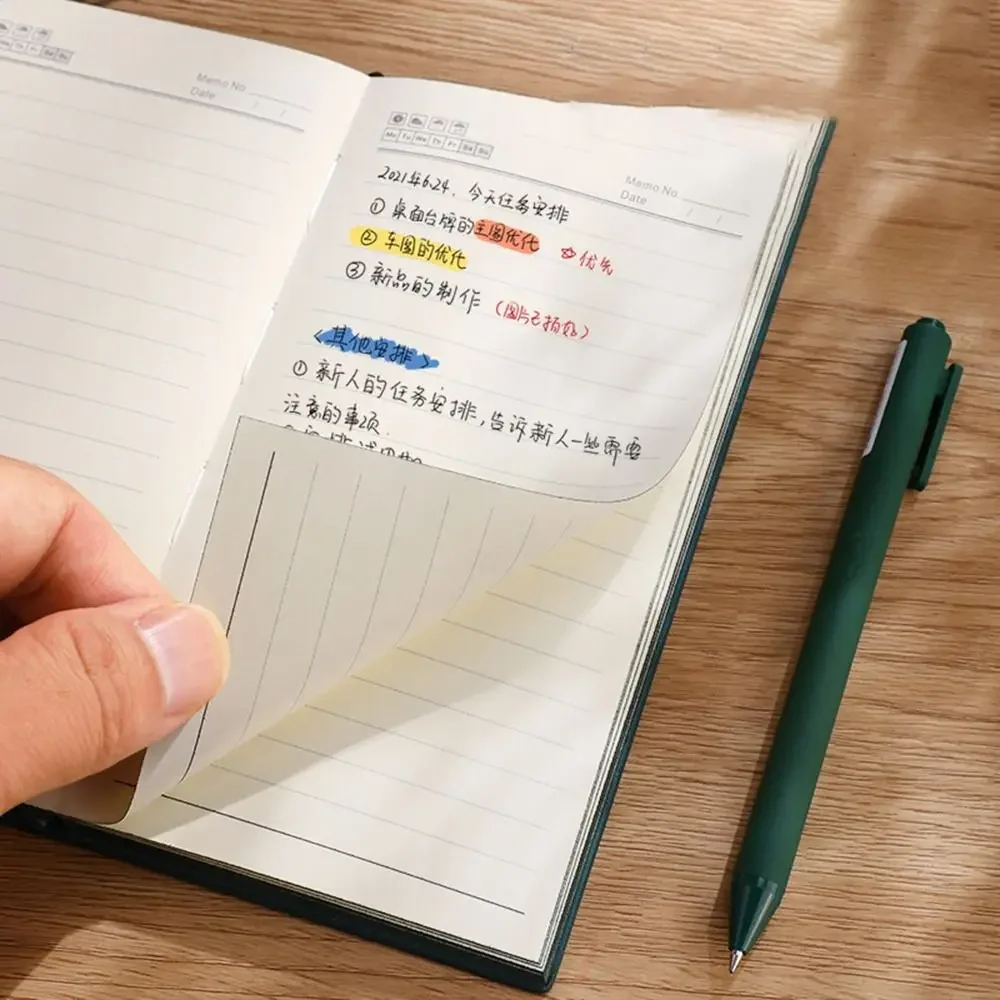 Memo No
Date / /
Mo Tu We Th Fr Sa Su
Memo No
Date / /
2021年6.24. 今天任务安排
① 桌面台牌的主图优化
② 车图的优化 ☆优先
③ 新品的制作 (图片已拍好)
<其他安排>
① 新人的任务安排,告诉新人一些需要
注意的事项.